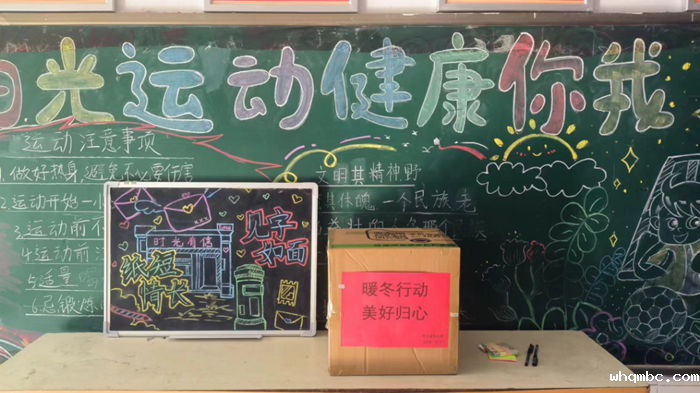 日光运动健康你我
运动注意事项
1.做好热身,避免不必要伤害
2.运动开始一小
3.运动前不
4.运动前
5.适量喝
6.忌锻炼
文明其精神野
体魄 一个民族老
时光有信
见字
如面
纸短
情长
暖冬行动
美好归心
whqmbc.com